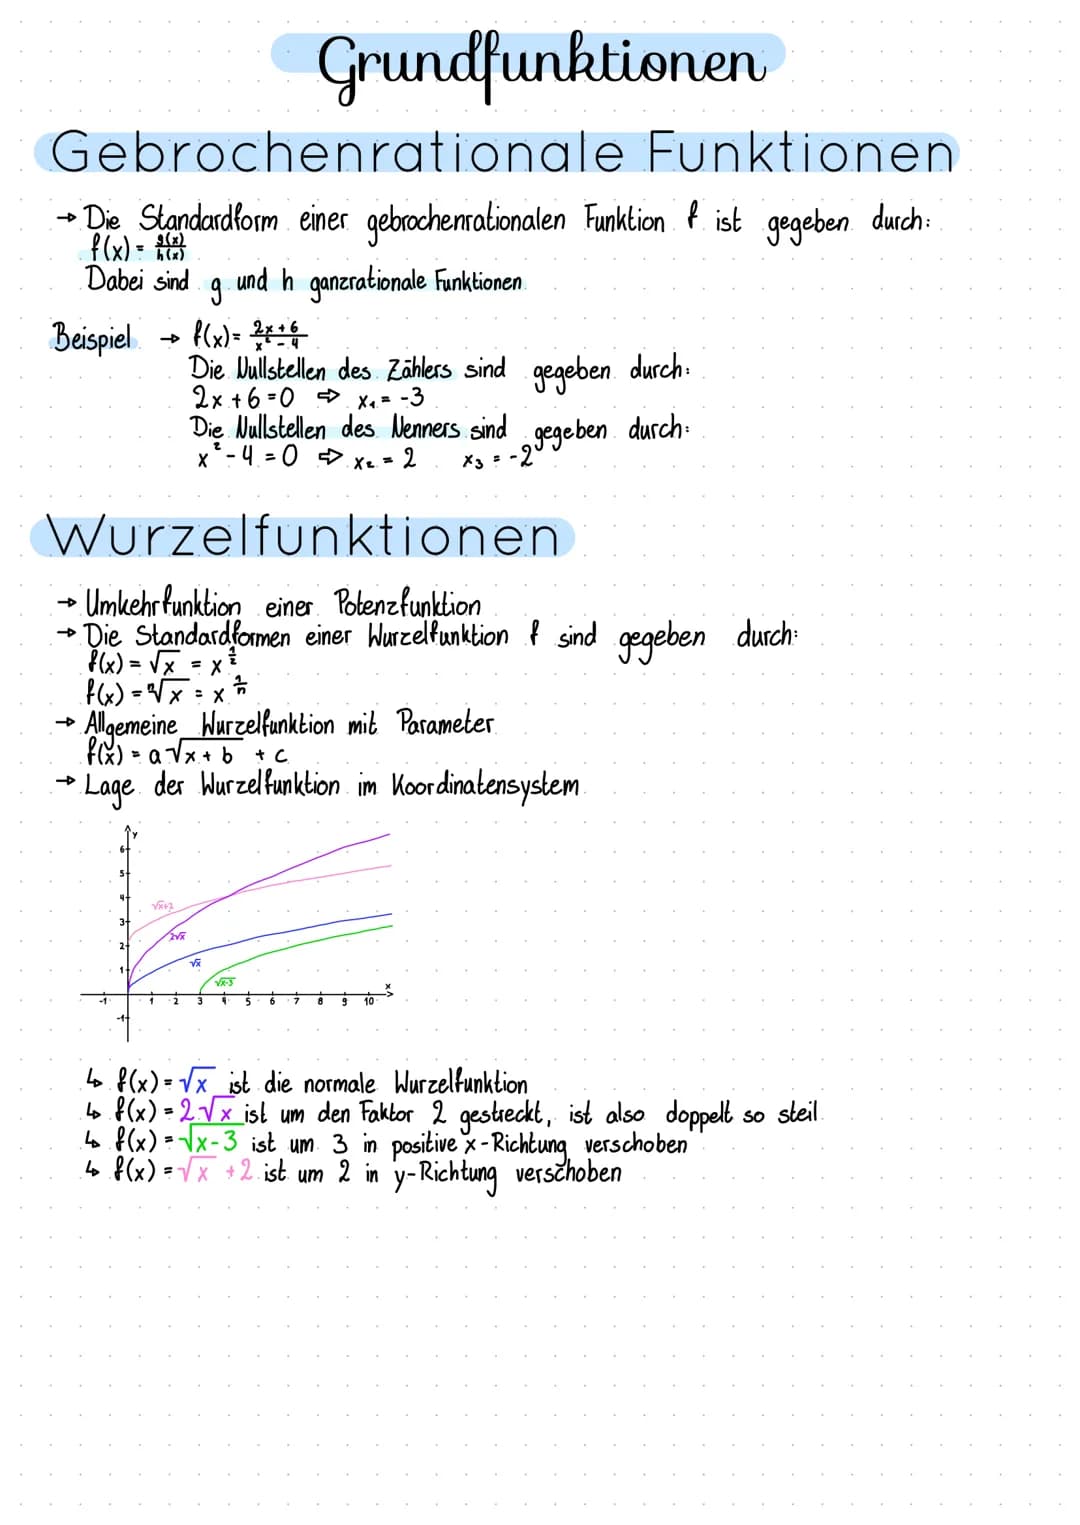 Grundfunktionen
Gebrochenrationale Funktionen
→ Die Standardform einer gebrochenrationalen Funktion f ist gegeben durch:
f(x) = g(x)/h(x)
Dabei sind g und h ganzrationale Funktionen
Beispiel → f(x) = (2x+6)/(x²-4)
Die Nullstellen des Zählers sind gegeben durch:
2x+6=0 ⇒ x₁ = -3
Die Nullstellen des Nenners sind gegeben durch:
x²-4=0 ⇒ x₂ = 2 x₃ = -2
Wurzelfunktionen
→ Umkehrfunktion einer Potenzfunktion
→ Die Standardformen einer Wurzelfunktion f sind gegeben durch:
f(x) = √x = x^(1/2)
f(x) = ⁿ√x = x^(1/n)
→ Allgemeine Wurzelfunktion mit Parameter
f(x) = a√(x+b) + c
→ Lage der Wurzelfunktion im Koordinatensystem
y
6
5
4
√x+2
3
2√x
2
√x
1
√x-3
x
-1 1 2 3 4 5 6 7 8 9 10
-1
↳ f(x) = √x ist die normale Wurzelfunktion
↳ f(x) = 2√x ist um den Faktor 2 gestreckt, ist also doppelt so steil
↳ f(x) = √x-3 ist um 3 in positive x-Richtung verschoben
↳ f(x) = √x +2 ist um 2 in y-Richtung verschoben